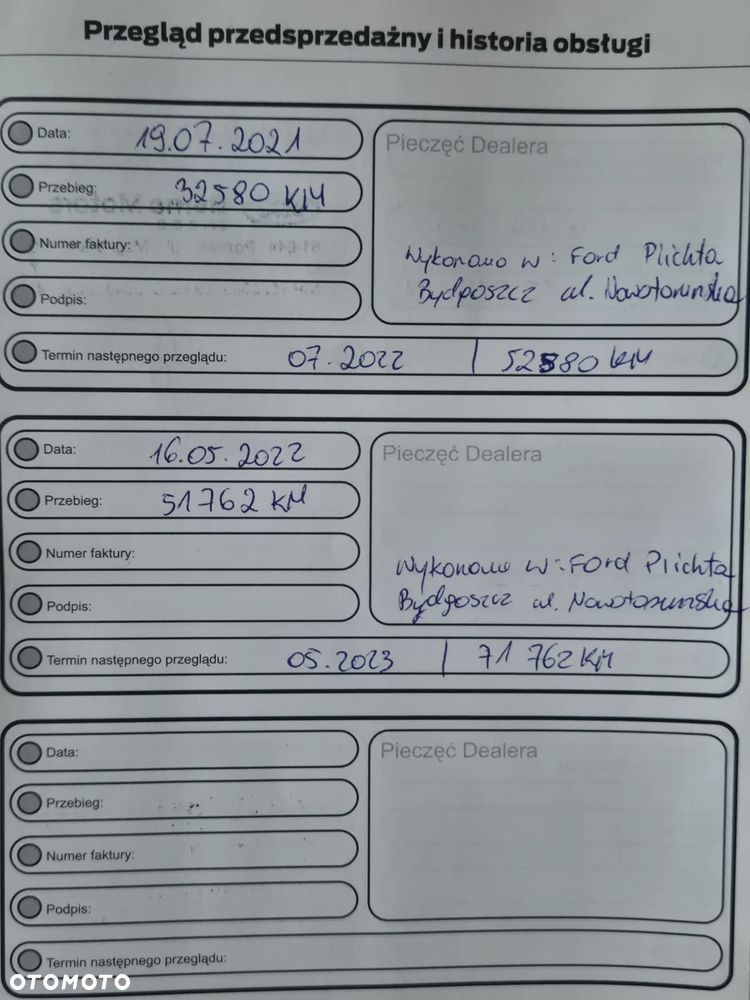 Przegląd przedsprzedażny i historia obsługi
Data: 19.07.2021
Przebieg: 32580 KM
Numer faktury:
Podpis:
Pieczęć Dealera
Wykonano w: Ford Plichta
Bydgoszcz ul. Nowotoruńska
Termin następnego przeglądu: 07.2022 | 52580 KM
Data: 16.05.2022
Przebieg: 51762 KM
Numer faktury:
Podpis:
Pieczęć Dealera
Wykonano w: Ford Plichta
Bydgoszcz ul. Nowotoruńska
Termin następnego przeglądu: 05.2023 | 71 762 KM
Data:
Przebieg:
Numer faktury:
Podpis:
Pieczęć Dealera
Termin następnego przeglądu:
OTOMOTO